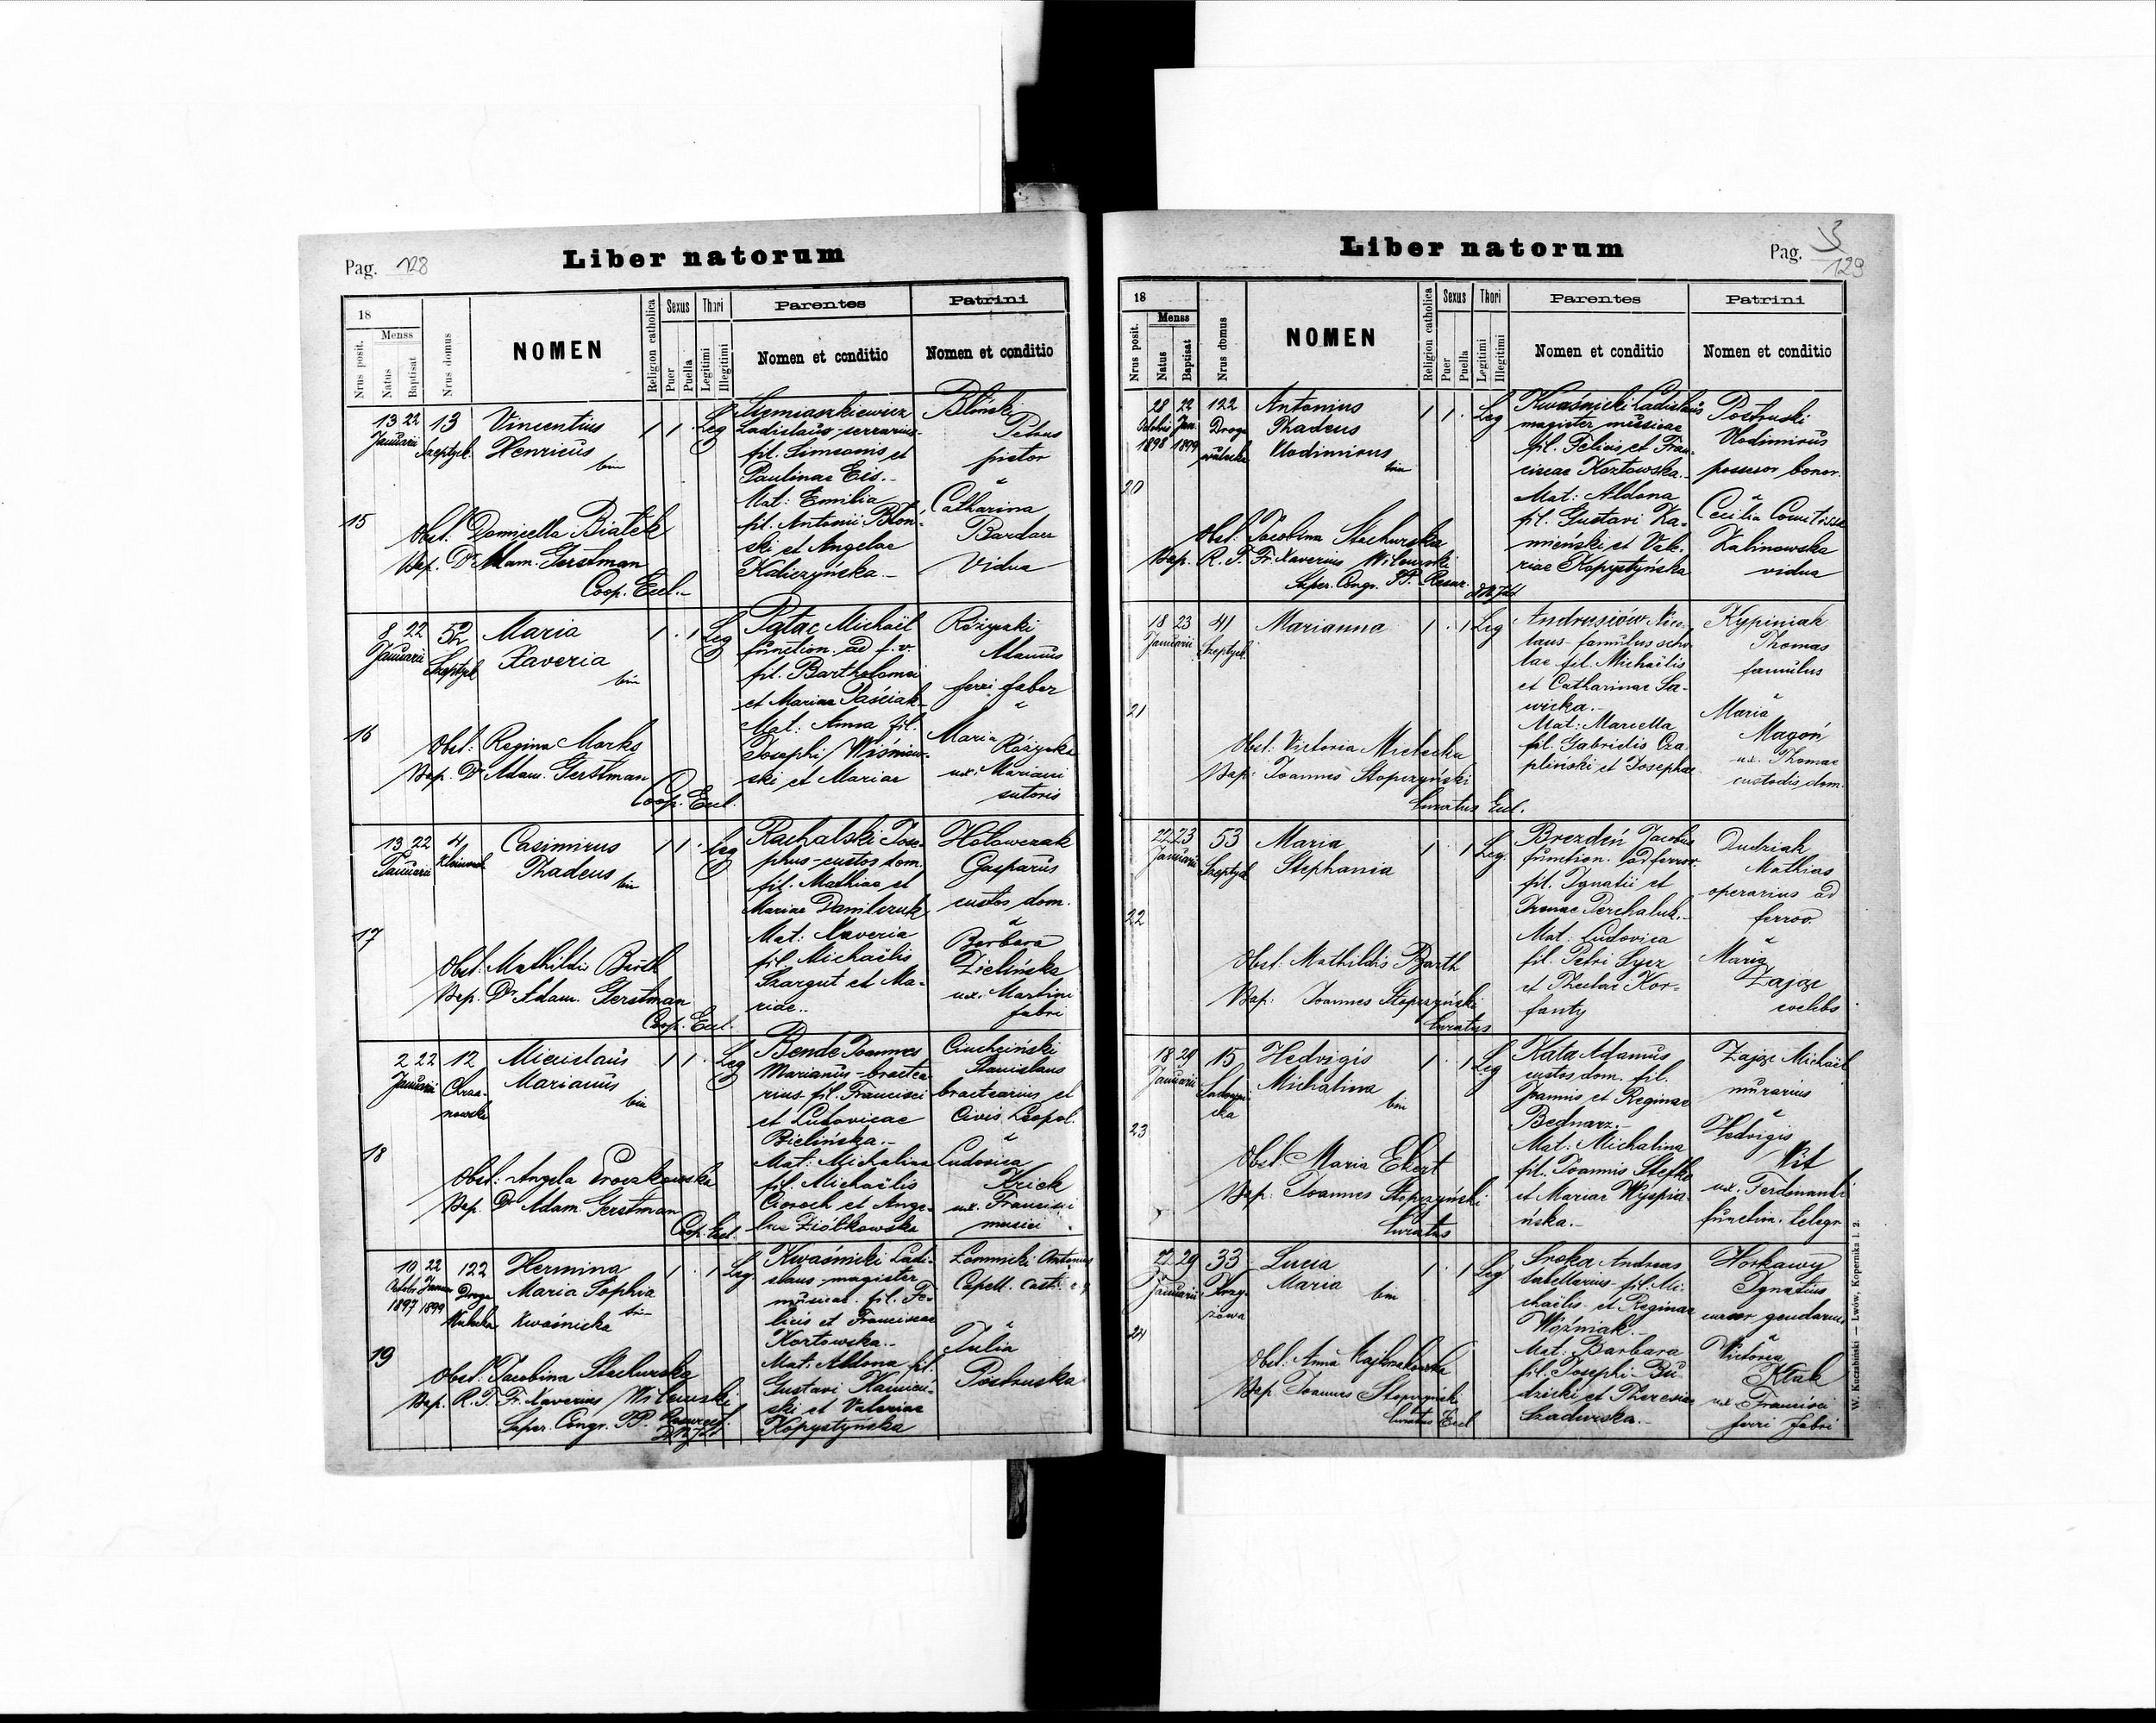 Pag. 128
Liber natorum
18
Menss
Nrus posit.
Natus
Baptisat
Nrus domus
NOMEN
Religion catholica
Sexus
Puer
Puella
Thori
Legitimi
Illegitimi
Parentes
Nomen et conditio
Patrini
Nomen et conditio
15
13 22
Januarii
13
Szeptyck.
Vincentius
Henricus
bin
Obst: Domicella Białek
Bap. Dr Adam. Gerstman
Coop. Eccl.-
1 1 Leg
Siemiaszkiewicz
Ladislaus serrarius-
fil. Simeonis et
Paulinae Eis.-
Mat: Emilia
fil. Antonii Błoń-
ski et Angelae
Kaliczyńska.-
Błoński
Petrus
pictor
Catharina
Bardau
Vidua
16
8 22
Januarii
52
Szeptyck
Maria
Xaveria
bin
Obst: Regina Marks
Bap. Dr Adam. Gerstman
Coop. Eccl.
1 · 1 Leg
Pałac Michaël
function. ad f. v.
fil. Bartholomei
et Mariae Paściak-
Mat: Anna fil.
Josephi Wiśniew-
ski et Mariae
Różycki
Adamus
ferri faber
Maria
Różycka
ux. Mariani
sutoris
17
13 22
Januarii
4
Kleinowsk
Casimirus
Thadeus
bin
Obst: Mathildis Barth
Bap. Dr Adam. Gerstman
Coop. Eccl.
1 1 · Leg
Rachalski Jose-
phus-custos dom.
fil. Mathiae et
Mariae Danilczuk
Mat: Xaveria
fil. Michaëlis
Szargut et Ma-
riae..
Hołowczak
Gasparus
custos dom.
Barbara
Zielińska
ux. Martini
fabri
18
2 22
Januarii
12
Chrza-
nowska
Miecislaus
Marianus
bin
Obst: Angela
Bap. Dr Adam. Gerstman
Coop. Eccl.
1 1 · Leg
Bende Joannes
Marianus-bractea
rius-fil. Francisci
et Ludovicae
Bielińska.-
Mat: Michalina
fil. Michaëlis
Cioroch et Ange-
lae Ziółkowska
Ciuchciński
Stanislaus
bractearius et
Civis Leopol.
Ludovica
Krick
ux. Francisci
musici
19
10 22
Octobr. Januar
1897 1899
122
Droga
Wulecka
Hermina
Maria Sophia
bin
Kwaśnicka
Obst: Jacobina Stachurska
Bap. R. P. Fr. Xaverius Wilewski
Super. Congr. PP. Resurrect.
1 · 1 Leg.
Kwaśnicki Ladi-
slaus-magister
musicae. fil. Fe-
licis et Franciscae
Kozłowska.-
Mat: Aldona fil.
Gustavi Kamień-
ski et Valeriae
Kopystyńska
Łomnicki Antonius
Capell. castr.
Julia
Postruska
Liber natorum
Pag. 3
129
18
Menss
Nrus posit.
Natus
Baptisat
Nrus domus
NOMEN
Religion catholica
Sexus
Puer
Puella
Thori
Legitimi
Illegitimi
Parentes
Nomen et conditio
Patrini
Nomen et conditio
20
28 22
Octobris Jan.
1898 1899
122
Droga
wulecka
Antonius
Thadeus
Wladimirus
bin
Obst: Jacobina Stachurska
Bap. R. P. Fr. Xaverius Wilewski
Super. Congr. PP. Resur.
1 1 · Leg
Kwaśnicki Ladislaus
magister musicae
fil. Felicis et Fran-
ciscae Kozłowska.-
Mat: Aldona
fil. Gustavi Ka-
mieński et Vale-
riae Kopystyńska
Postruski
Wladimirus
possessor bonor.
Cecilia Comitissa
Kalinowska
vidua
21
18 23
Januarii
41
Szeptyck.
Marianna
Obst: Victoria
Bap: Joannes Stopczyński
Curatus Eccl.
1 · 1 Leg
Andrusiów Nico-
laus-famulus scho-
lae fil. Michaëlis
et Catharinae Sa-
wicka.-
Mat: Marcella
fil. Gabrielis Cza-
pliński et Josephae
Kypiniak
Thomas
famulus
Maria
Magoń
ux. Thomae
custodis dom.
22
22 23
Januarii
53
Szeptyck
Maria
Stephania
Obst: Mathildis Barth
Bap: Joannes Stopczyński
Curatus
1 · 1 Leg.
Brezdeń Jacobus
function. ad ferrov.
fil. Ignatii et
Irenae Perchaluk.-
Mat: Ludovica
fil. Petri Syez
et Theclae Kor-
fanty
Dudziak
Mathias
operarius ad
ferrov.
Maria
Zając
coelebs
23
18 29
Januarii
15
Hedvigis
Michalina
bin
Obst: Maria Ekert
Bap: Joannes Stopczyński
Curatus
1 · 1 Leg
Kata Adamus
custos dom. fil.
Joannis et Reginae
Bednarz.-
Mat: Michalina
fil. Joannis Stefko
et Mariae Wyspia-
ńska.-
Zając Michaël
murarius
Hedvigis
Wit
ux. Ferdinandi
function. telegr.
24
22 29
Januarii
33
Lucia
Maria
bin
Obst: Anna
Bap Joannes Stopczyński
Curatus Eccl
1 · 1 Leg
Sroka Andreas
tabellarius-fil. Mi-
chaëlis et Reginae
Woźniak.-
Mat: Barbara
fil. Josephi Bu-
dzicki et Theresiae
Szadwiska.-
Horkawy
Ignatius
gendarm.
Victoria
Kłak
ux. Francisci
ferri fabri
W. Kuczabiński — Lwów, Kopernika l. 2.